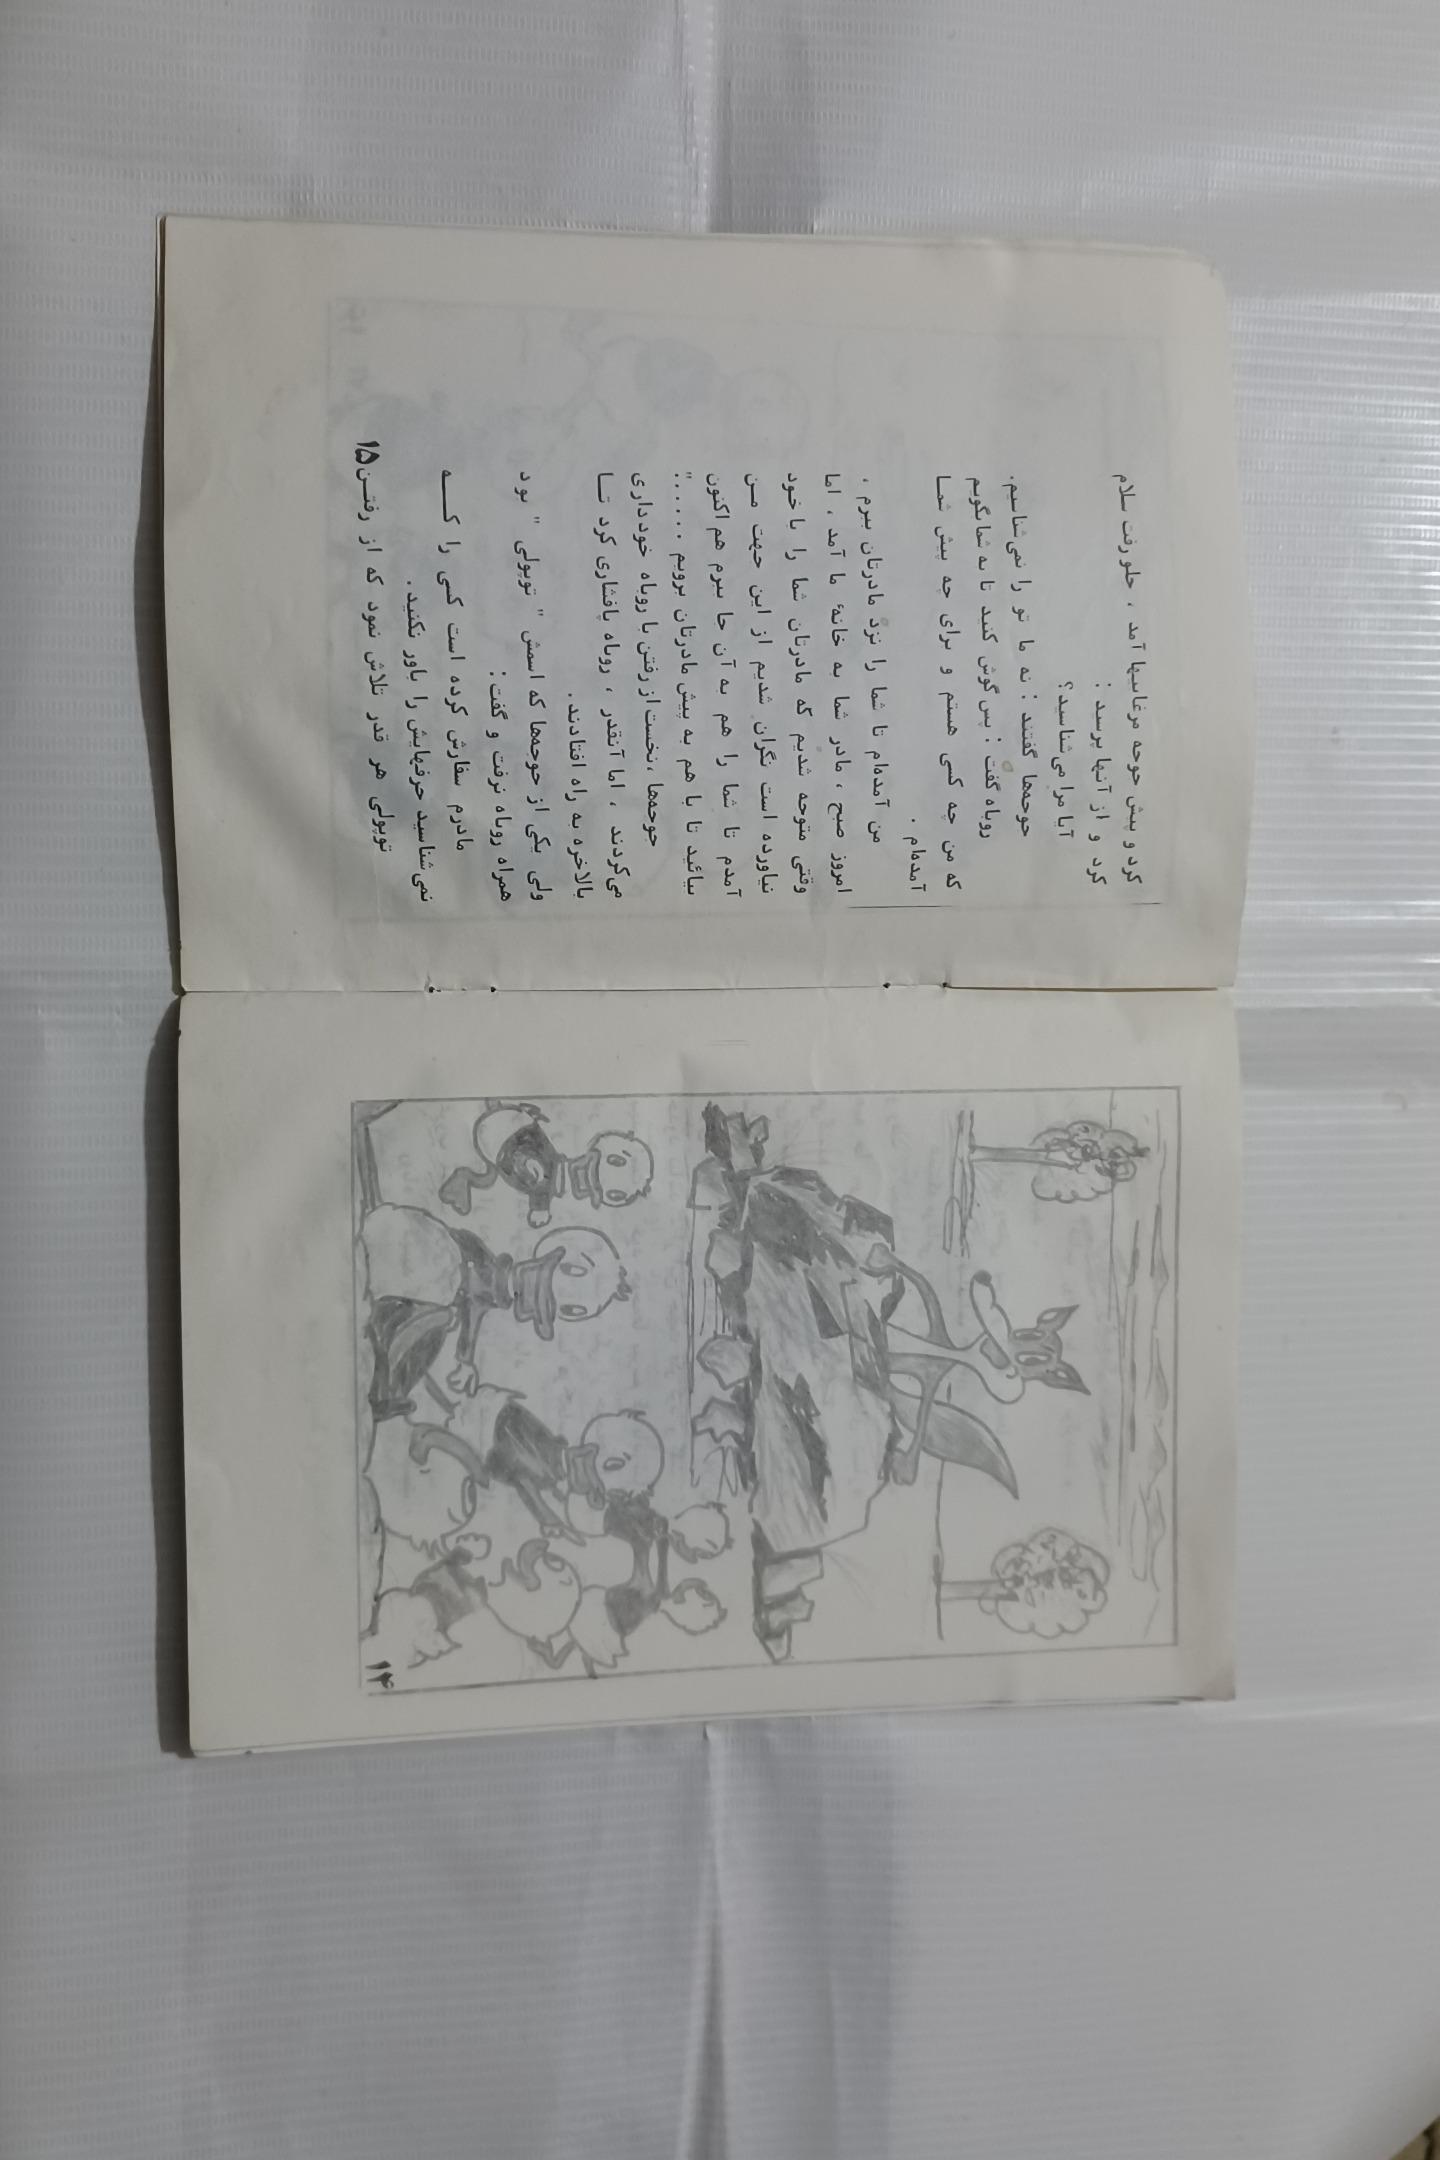 کرد و پیش جوجه مرغابیها آمد ، جلو رفت سلام
کرد و از آنها پرسید :
آیا مرا می‌شناسید؟
جوجه‌ها گفتند : نه ما تو را نمی‌شناسیم.
روباه گفت : پس گوش کنید تا به شما بگویم
که من چه کسی هستم و برای چه پیش شما
آمده‌ام .
من آمده‌ام تا شما را نزد مادرتان ببرم ،
امروز صبح ، مادر شما به خانهٔ ما آمد ، اما
وقتی متوجه شدیم که مادرتان شما را با خود
نیاورده است نگران شدیم از این جهت من
آمدم تا شما را هم به آن جا ببرم هم اکنون
بیائید تا با هم به پیش مادرتان برویم ......"
جوجه‌ها ،نخست از رفتن با روباه خودداری
می‌کردند ، اما آنقدر ، روباه پافشاری کرد تا
بالاخره به راه افتادند.
ولی یکی از جوجه‌ها که اسمش " توپولی " بود
همراه روباه نرفت و گفت:
مادرم سفارش کرده است کسی را که
نمی‌شناسید حرفهایش را باور نکنید.
توپولی هر قدر تلاش نمود که از رفتن
۱۵
۱۴